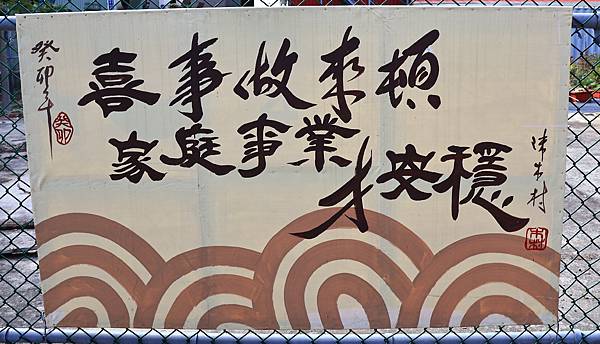 癸卯年
喜事做來頓
家庭事業才安穩